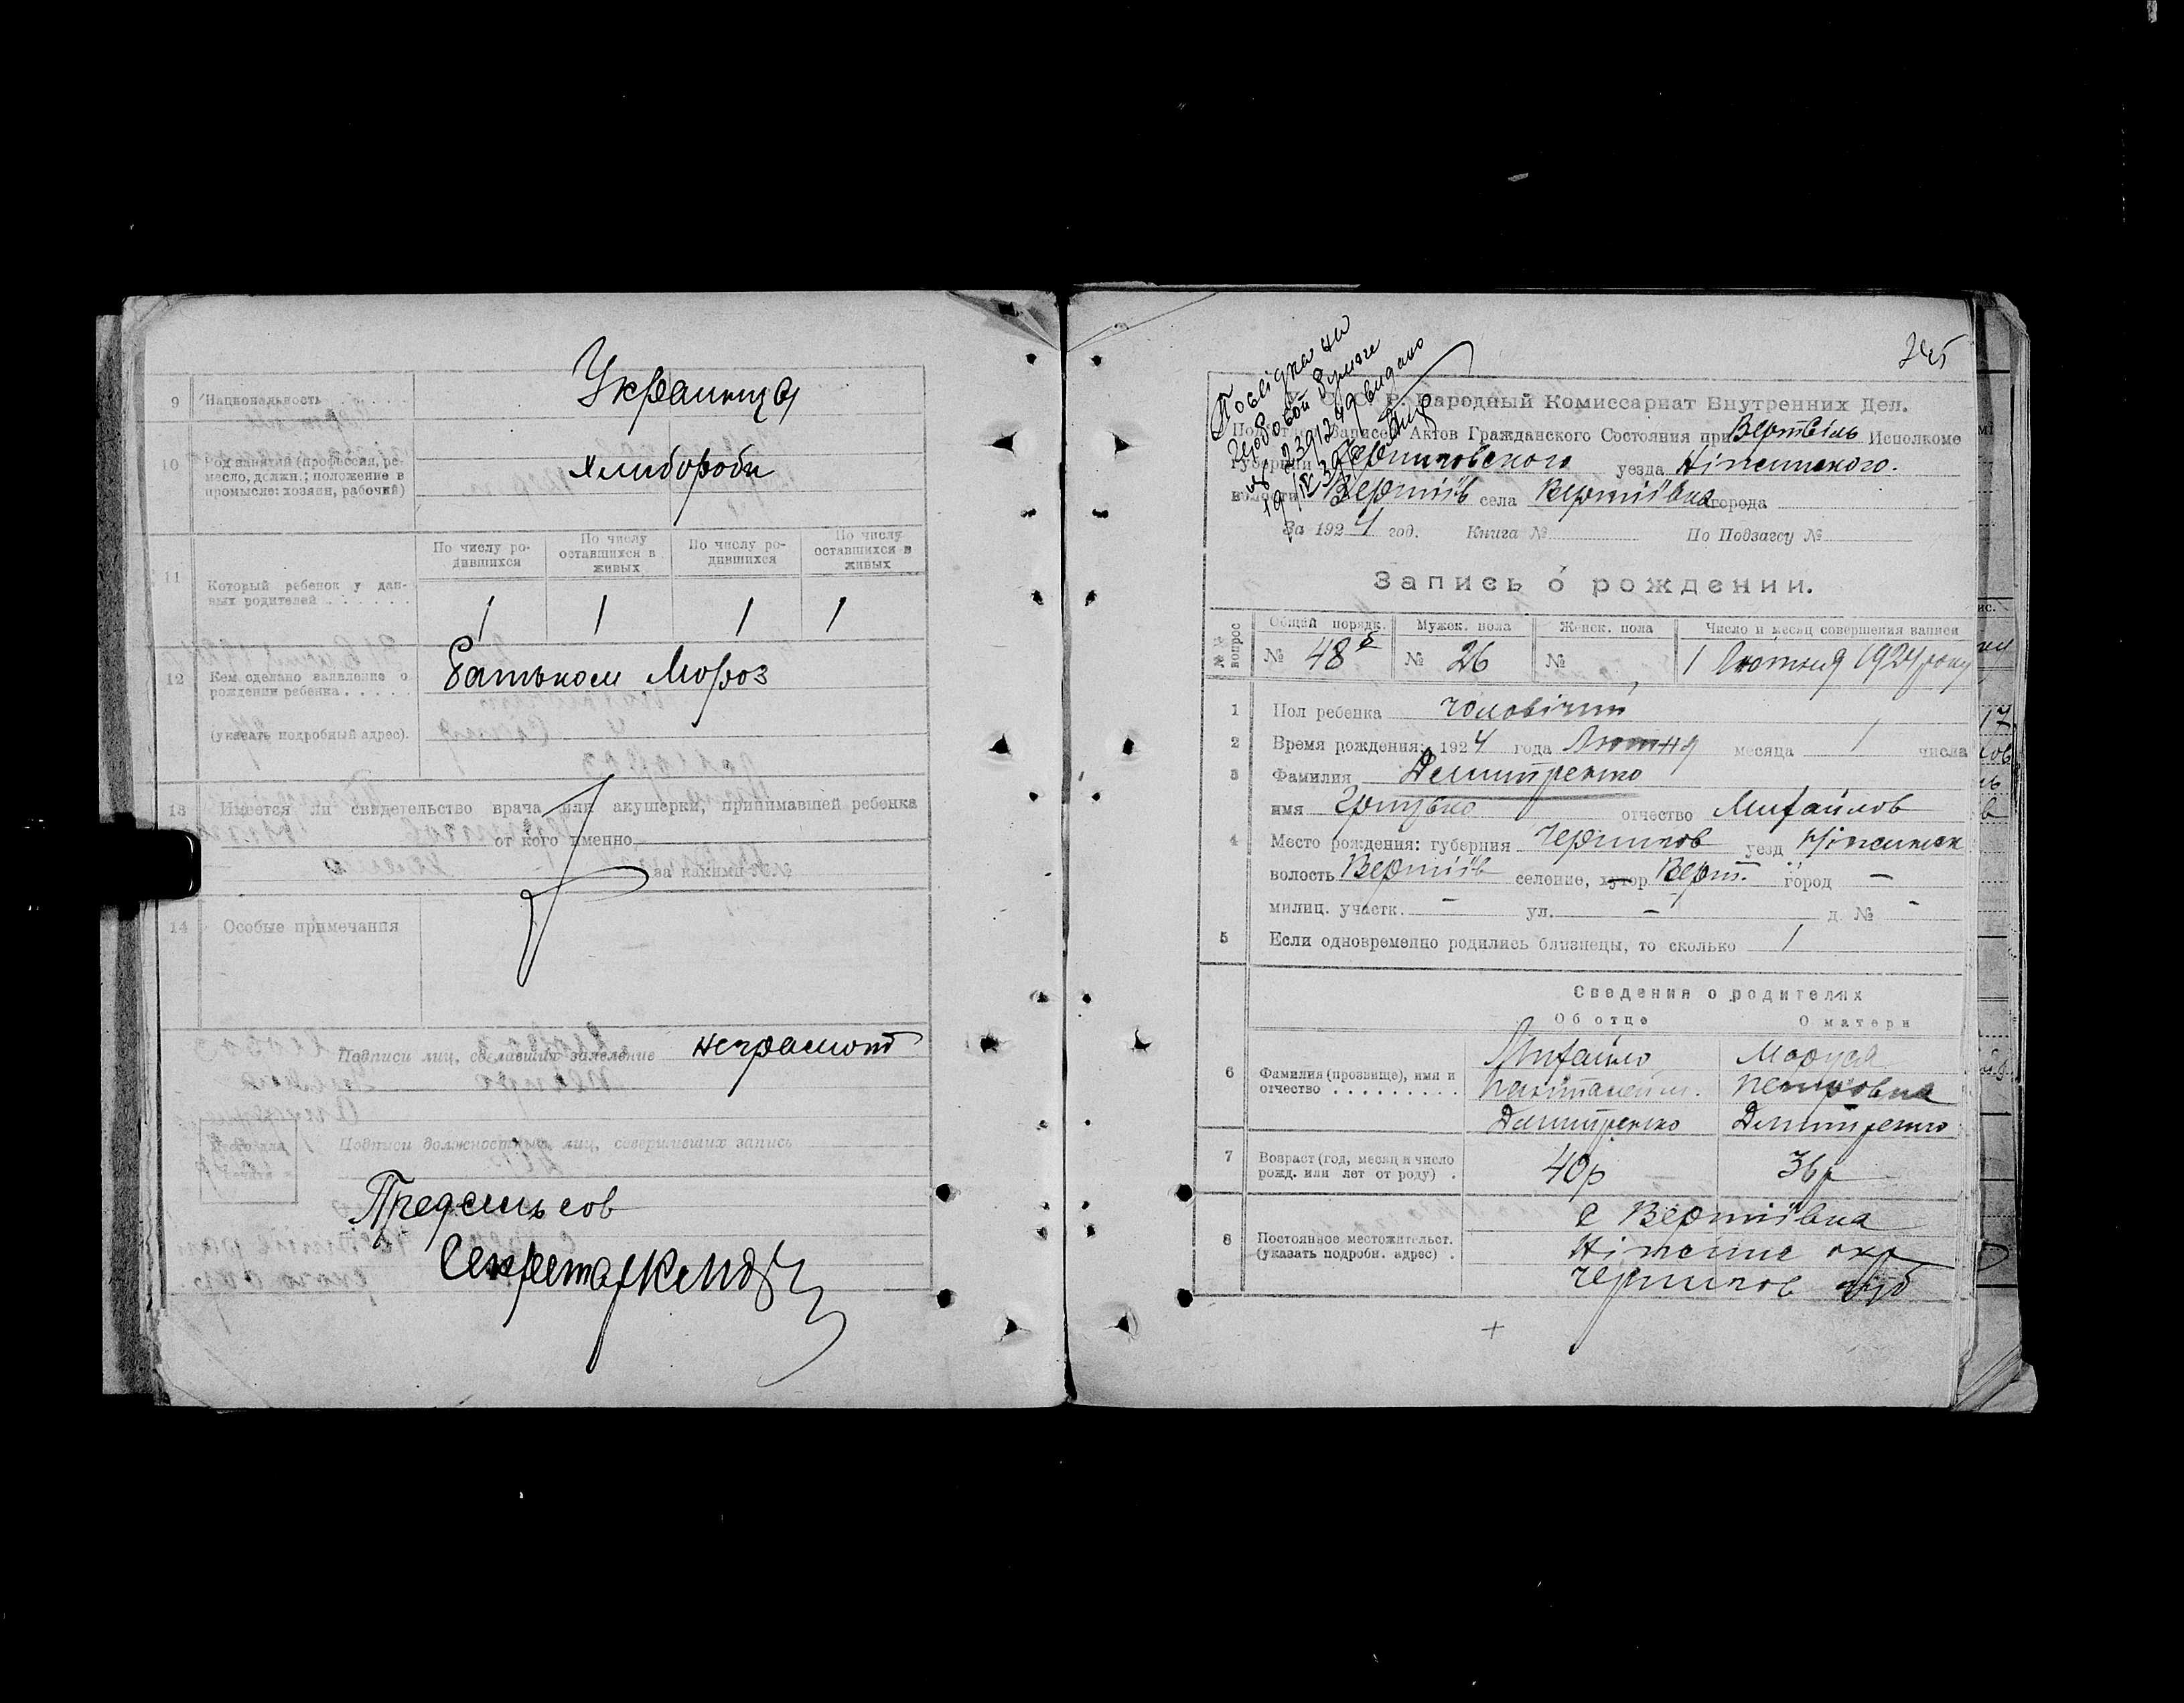 9 Национальность
Украинцы
10 Род занятий (профессия, ре-
месло, должн.; положение в
промысле: хозяин, рабочий)
хлибороби
11 Который ребенок у дан-
ных родителей
По числу ро-
дившихся
По числу
оставшихся в
живых
По числу ро-
дившихся
По числу
оставшихся в
живых
1 1 1 1
12 Кем сделано заявление о
рождении ребенка
(указать подробный адрес).
Батьком Мороз
13 Имеется ли свидетельство врача или акушерки, принимавшей ребенка
от кого именно
за каким №
14 Особые примечания
Подписи лиц, сделавших заявление неграмот
Подписи должностных лиц, совершивших запись
Предсильсов
Секретар
245
Посвідка на
гербовой бумаге
239/249 видано
Р. Народный Комиссариат Внутренних Дел.
Записей Актов Гражданского Состояния при Исполкоме
Губернии Черниговского уезда Ніжинського.
волости Вертіїв села Вертіївка города
За 1924 год. Книга № По Подзагсу №
Запись о рождении.
№№ вопрос
Общий порядк. Мужск. пола Женск. пола Число и месяц совершения записи
№ 48 № 26 № 1 Лютня 1924 року
1 Пол ребенка чоловічий
2 Время рождения: 1924 года Лютня месяца 1 числа
3 Фамилия Демитренко
имя Грицько отчество Михайлов
4 Место рождения: губерния Чернигов уезд Ніжинськ
волость Вертіїв селение, хутор Верт. город —
милиц. участк. — ул. — д. № —
5 Если одновременно родились близнецы, то сколько 1
Сведения о родителях
Об отце О матери
6 Фамилия (прозвище), имя и
отчество
Михайло
Пантелейм.
Демитренко
Маруся
Петровна
Демитренко
7 Возраст (год, месяц и число
рожд. или лет от роду)
40р 36р
8 Постоянное местожительст.
(указать подробн. адрес)
с Вертіївка
Ніженне окр
Чернигов губ